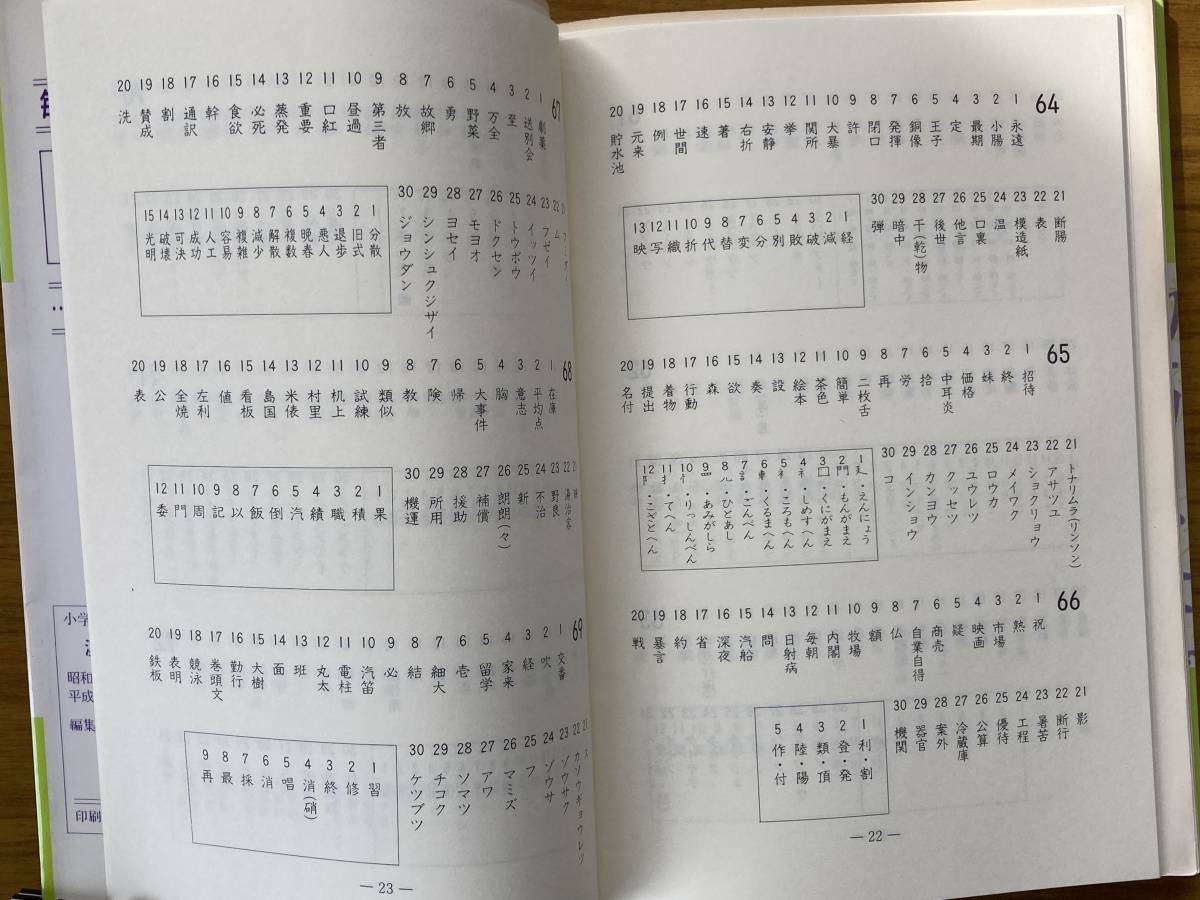 64
1 永遠
2 小腸
3 最期
4 定
5 王子
6 銅像
7 発揮
8 閉口
9 許
10 大暴
11 関所
12 挙
13 安静
14 右折
15 著
16 速
17 世間
18 例
19 元来
20 貯水池
21 断腸
22 表
23 模造紙
24 温
25 口裏
26 他言
27 後世
28 干(乾)物
29 暗中
30 弾
1 経
2 減
3 破
4 敗
5 別
6 分
7 変
8 替
9 代
10 折
11 織
12 写
13 映
65
1 招待
2 終
3 妹
4 価格
5 中耳炎
6 拾
7 労
8 再
9 二枚舌
10 簡単
11 茶色
12 絵本
13 設
14 奏
15 欲
16 森
17 行動
18 着物
19 提出
20 名付
21 トナリムラ(リンソン)
22 アサツユ
23 ショクリョウ
24 メイワク
25 ロウカ
26 ユウレツ
27 クッセツ
28 カンヨウ
29 インショウ
30 コ
1 廴・えんにょう
2 門・もんがまえ
3 囗・くにがまえ
4 礻・しめすへん
5 衤・ころもへん
6 車・くるまへん
7 言・ごんべん
8 儿・ひとあし
9 罒・あみがしら
10 忄・りっしんべん
11 扌・てへん
12 阝・こざとへん
66
1 祝
2 熟
3 市場
4 映画
5 疑
6 商売
7 自業自得
8 仏
9 額
10 牧場
11 内閣
12 毎朝
13 日射病
14 問
15 汽船
16 深夜
17 省
18 約
19 暴言
20 戦
21 影
22 断行
23 暑苦
24 工程
25 優待
26 公算
27 冷蔵庫
28 案外
29 器官
30 機関
1 利・割
2 登・発
3 類・頂
4 陸・陽
5 作・付
— 22 —
67
1 劇薬
2 送別会
3 至
4 万全
5 野菜
6 勇
7 故郷
8 放
9 第三者
10 昼過
11 口紅
12 重要
13 蒸発
14 必死
15 食欲
16 幹
17 通訳
18 割
19 賛成
20 洗
22 ム
23 フゼイ
24 イッツイ
25 トウボウ
26 ドクセン
27 モヨオ
28 ヨセイ
29 シンシュクジザイ
30 ジョウダン
1 分散
2 旧式
3 退歩
4 悪人
5 晩春
6 複数
7 解散
8 減少
9 複雑
10 容易
11 人工
12 成功
13 可決
14 破壊
15 光明
68
1 在庫
2 平均点
3 意志
4 胸
5 大事件
6 帰
7 険
8 教
9 類似
10 試練
11 机上
12 村里
13 米俵
14 島国
15 看板
16 値
17 左利
18 全焼
19 公
20 表
22 湯治客
23 野良
24 不治
25 新
26 朗朗(々)
27 補償
28 援助
29 所用
30 機運
1 果
2 積
3 職
4 績
5 汽
6 倒
7 飯
8 以
9 記
10 周
11 門
12 委
69
1 交番
2 吹
3 経
4 家来
5 留学
6 壱
7 細大
8 結
9 必
10 汽笛
11 電柱
12 丸太
13 班
14 面
15 大樹
16 勤行
17 巻頭文
18 競泳
19 表明
20 鉄板
21 ス
22 カソウギョウレツ
23 ソウサク
24 ゾウサ
25 フ
26 マミズ
27 アワ
28 ソマツ
29 チコク
30 ケツブツ
1 習
2 修
3 終
4 消(硝)
5 唱
6 消
7 採
8 最
9 再
— 23 —
小学
昭和
平成
編集
印刷